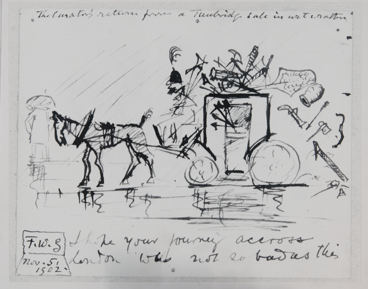 "The Curator's return from a Tunbridge sale in wet weather"
F.W.G
Nov. 5,
1902.
I hope your journey accross
London was not so bad as this